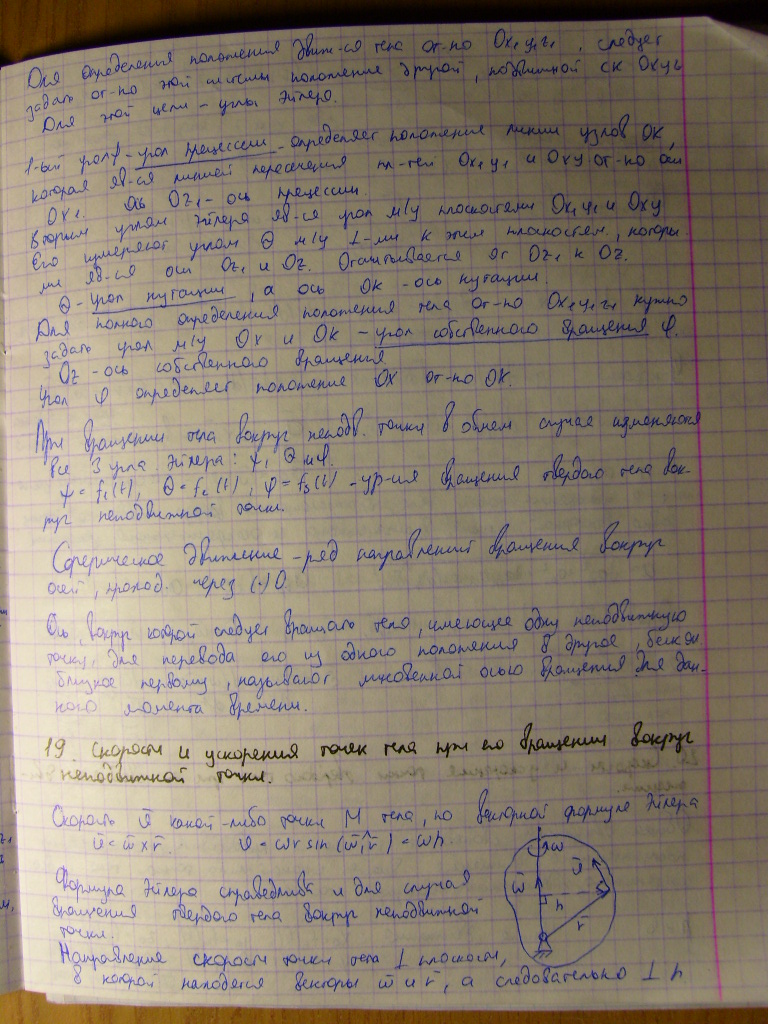 Для определения положения движ-ся тела от-но Ox₁y₁z₁, следует
задать от-но этой системы положение другой, подвижной ск Oxyz
Для этой цели – углы Эйлера.
1-ый угол ψ – угол прецессии – определяет положение линии узлов OK,
которая яв-ся линией пересечения пл-тей Ox₁y₁ и Oxy от-но оси
Ox₁. Ось Oz₁ – ось прецессии.
Вторым углом Эйлера яв-ся угол м/у плоскостями Ox₁y₁ и Oxy
Его измеряют углом θ м/у ⊥-ми к этим плоскостям, которы-
ми яв-ся оси Oz₁ и Oz. Отсчитывается от Oz₁ к Oz.
θ – угол нутации, а ось OK – ось нутации.
Для полного определения положения тела от-но Ox₁y₁z₁ нужно
задать угол м/у Ox и OK – угол собственного вращения φ.
Oz – ось собственного вращения
Угол φ определяет положение Ox от-но OK.
При вращении тела вокруг неподв. точки в общем случае изменяются
все 3 угла Эйлера: ψ, θ и φ.
ψ = f₁(t), θ = f₂(t), φ = f₃(t) – ур-ия вращения твердого тела вок-
руг неподвижной точки.
Сферическое движение – ряд направлений вращения вокруг
осей, проход. через (·) O
Ось, вокруг которой следует вращать тело, имеющее одну неподвижную
точку, для перевода его из одного положения в другое, беско
близкое первому, называют мгновенной осью вращения для дан-
ного момента времени.
19. Скорости и ускорения точек тела при его вращении вокруг
неподвижной точки.
Скорость v̄ какой-либо точки M тела, по векторной формуле Эйлера
v̄ = ω̄ × r̄. v = ωr sin (ω̄,^r̄) = ωh.
ω
ω̄
v̄
h
r̄
Формула Эйлера справедлива и для случая
вращения твердого тела вокруг неподвижной
точки.
Направление скорости точки тела ⊥ плоскости,
в которой находятся векторы ω̄ и r̄, а следовательно ⊥ h